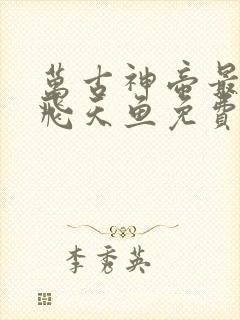 萬古神帝最
飛天魚免費
李秀英